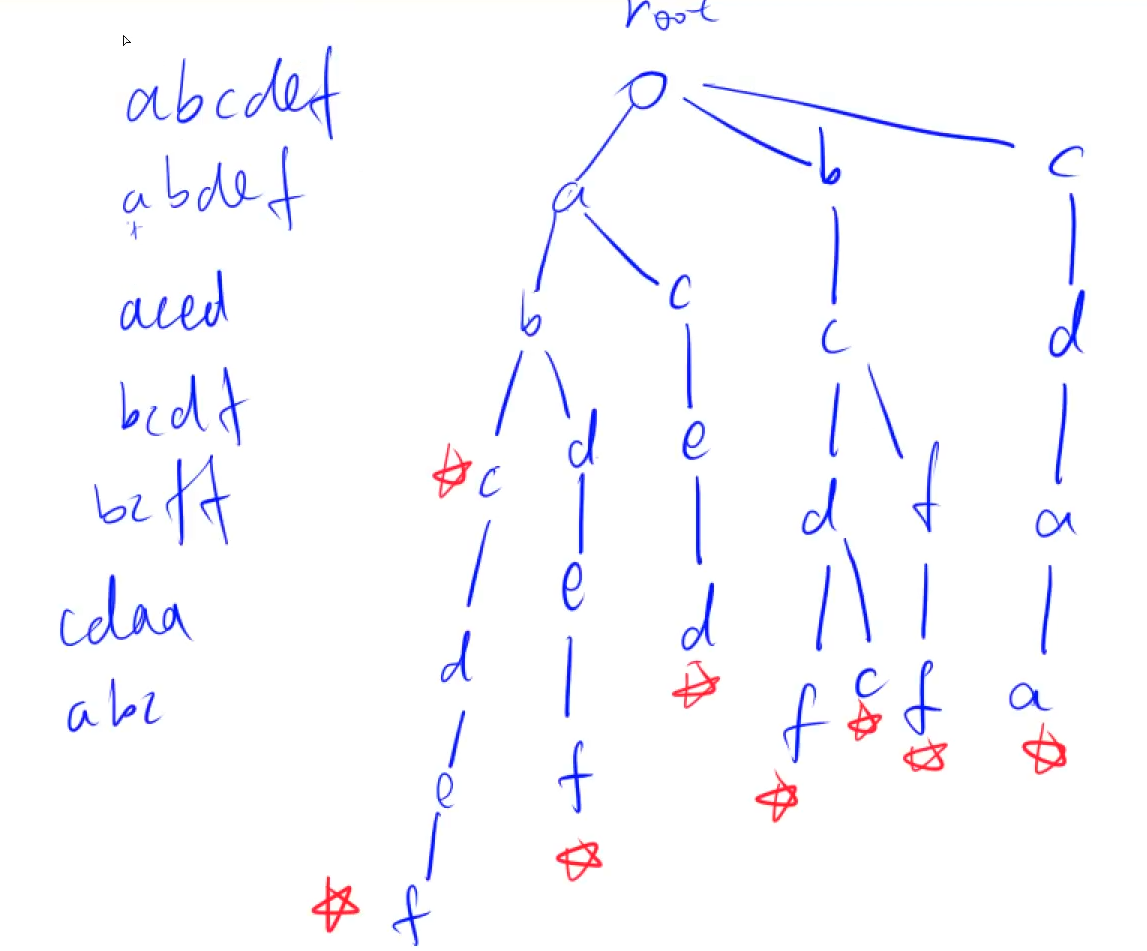 root
abcdef
abdef
aced
bcdf
bcff
cdaa
abc
a
b
c
b
c
c
d
c
d
e
d
f
a
d
e
d
e
f
c
f
a
f
f